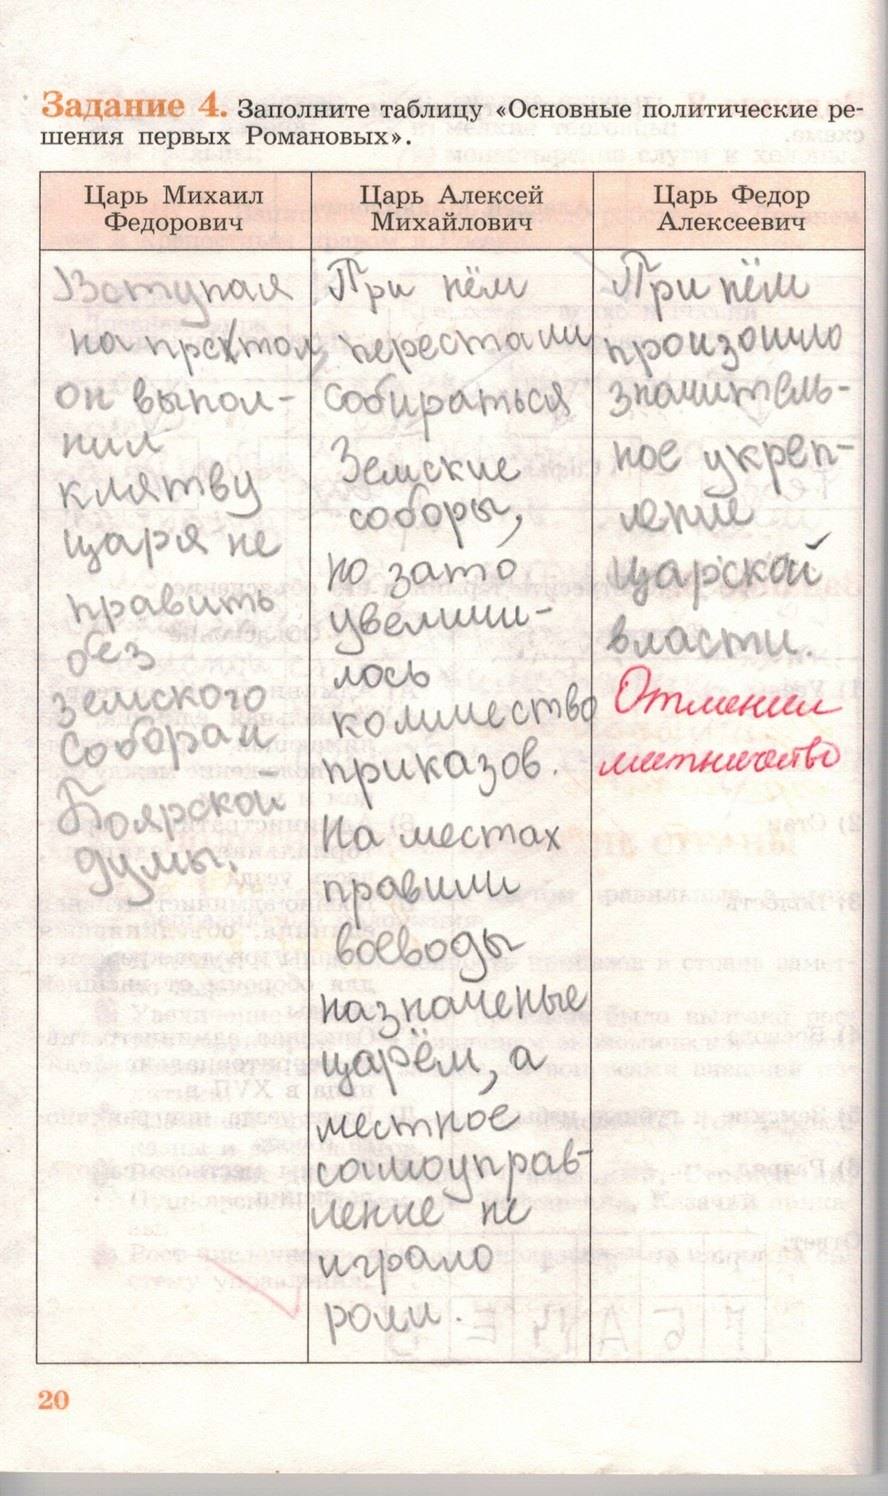 Задание 4. Заполните таблицу «Основные политические ре-
шения первых Романовых».
Царь Михаил
Федорович
Вступая
на престол,
он выпол-
нил
клятву
царя не
править
без
земского
собора и
Боярской
думы.
Царь Алексей
Михайлович
При нём
перестали
собираться
Земские
соборы,
но зато
увеличи-
лось
количество
приказов.
На местах
правили
воеводы
назначеные
царём, а
местное
самоуправ-
ление не
играло
роли.
Царь Федор
Алексеевич
При нём
произошло
значитель-
ное укреп-
ление
царской
власти.
Отменил
местничество
20